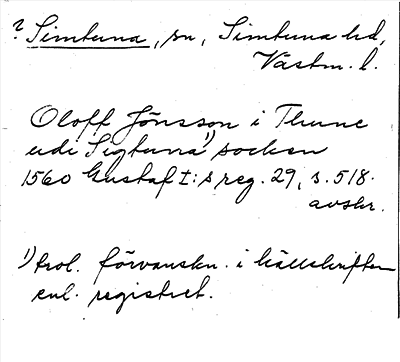 ? Simtuna, sn, Simtuna hd,
Västm. l.
Oloff Jönsson i Thune
udi Sigtuna 1) socken
1560 Gustaf I:s reg. 29, s. 518.
avskr.
1) trol. förvanskn. i källskriften
enl. registret.